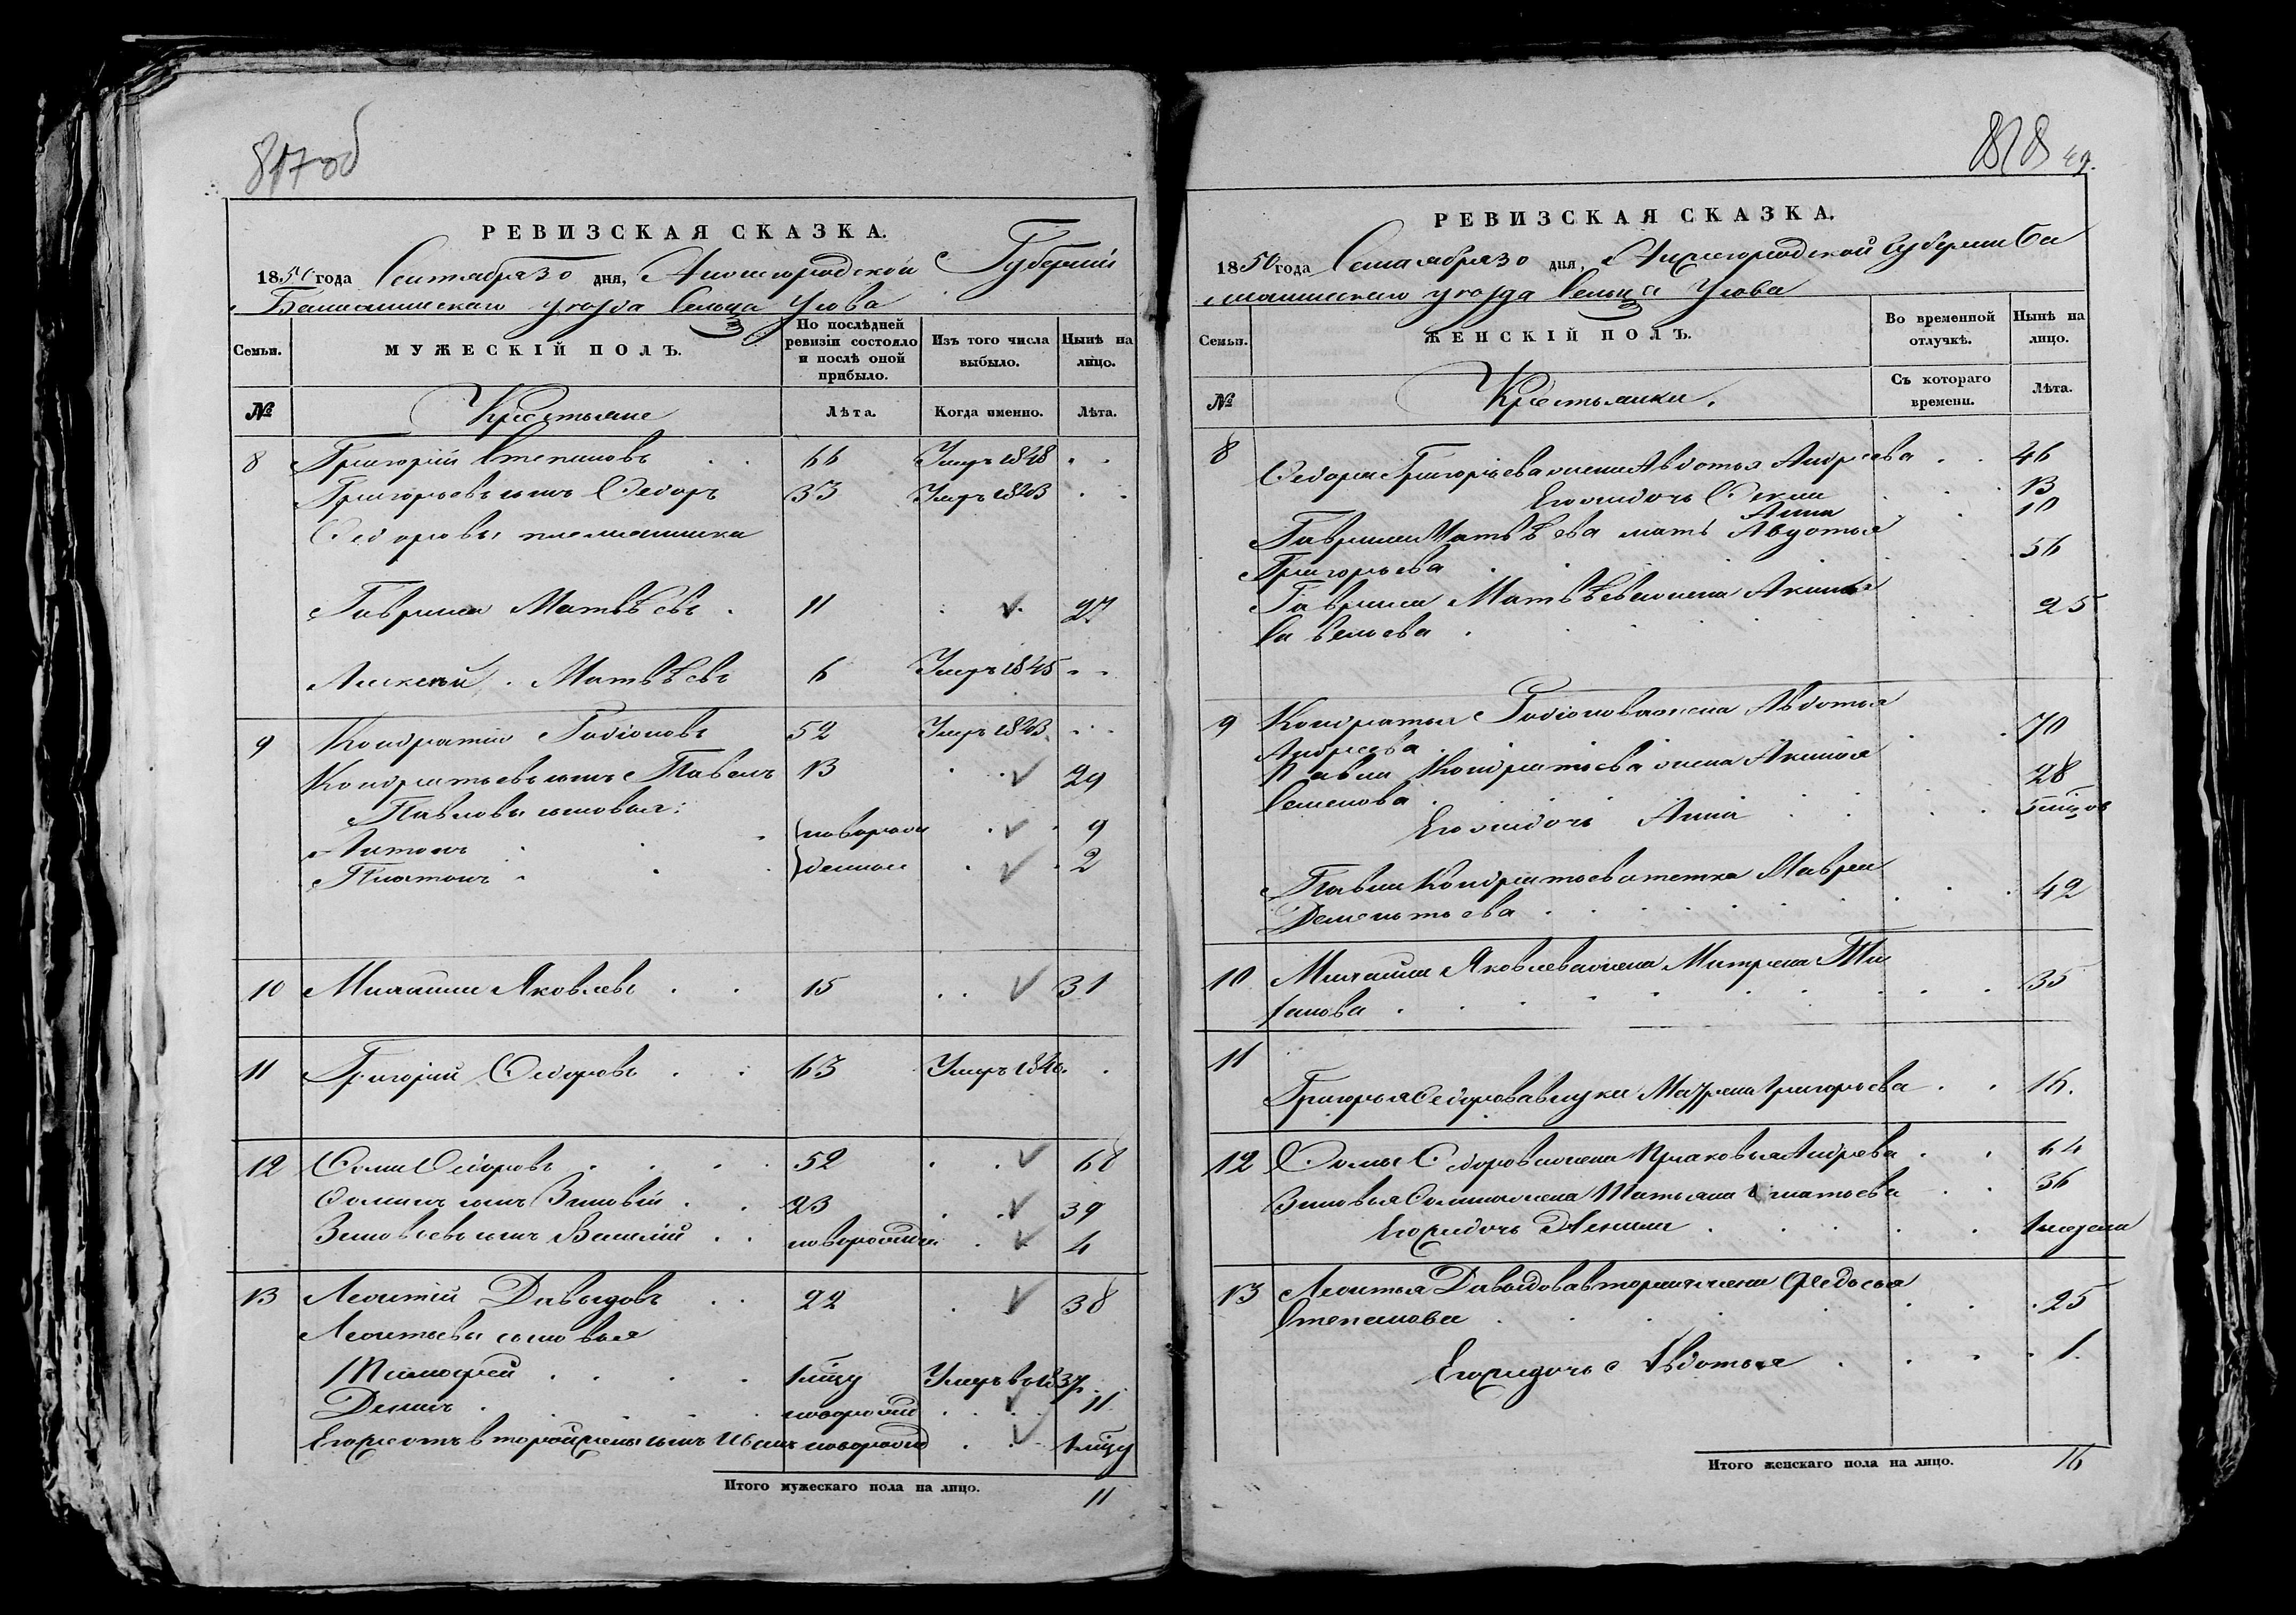 817об
РЕВИЗСКАЯ СКАЗКА.
1850 года Сентября 30 дня, Нижегородской Губерніи
Балахнинскаго уезда Сельца Ускова
Семьи.
МУЖЕСКІЙ ПОЛЪ.
По послѣдней ревизіи состояло и послѣ оной прибыло.
Изъ того числа выбыло.
Нынѣ на лицо.
№ Крестьяне Лѣта. Когда именно. Лѣта.
8 Григорій Степановъ 66 Умръ 1848
Григорьевъ сынъ Федоръ 33 Умръ 1843
Федоровы племянники
Гаврила Матвѣевъ 11 27
Алексѣй Матвѣевъ 6 Умръ 1845
9 Кондратій Родіоновъ 52 Умръ 1843
Кондратьевъ сынъ Павелъ 13 29
Павловы сыновья:
Антонъ новорож 9
Платонъ денные 2
10 Михайла Яковлевъ 15 31
11 Григорій Федоровъ 63 Умръ 1840
12 Фома Федоровъ 52 68
Фоминъ сынъ Зиновій 23 39
Зиновьевъ сынъ Василій новорожден 4
13 Леонтій Давыдовъ 22 38
Леонтьевы сыновья
Тимофей 1 мцу Умръ въ 1837
Денисъ новорожд 11
Его же отъ второй жены сынъ Иванъ новорожд 1 мцу
Итого мужескаго пола на лицо. 11
818 49.
РЕВИЗСКАЯ СКАЗКА.
1850 года Сентября 30 дня, Нижегородской Губерніи Ба
лахнинскаго уезда Сельца Ускова
Семьи.
ЖЕНСКІЙ ПОЛЪ.
Во временной отлучкѣ.
Нынѣ на лицо.
№ Крестьянки. Съ котораго времени. Лѣта.
8 Федора Григорьева жена Авдотья Андреева 46
Его же дочь Фекла 13
Анна 10
Гаврилы Матвѣева мать Авдотья
Григорьева 56
Гаврила Матвѣева жена Акулина
Савельева 25
9 Кондратья Родіонова жена Авдотья
Андреева 70
Павла Кондратьева жена Аксинья
Семенова 28
Его же дочь Анна 5 мцов
Павла Кондратьева тетка Мавра
Дементьева 42
10 Михайлы Яковлева жена Матрена
35
11
Григорья Федорова внука Матрена Григорьева 16.
12 Фомы Федорова жена Прасковья Андреева 64
Зиновья Фомина жена Татьяна Игнатьева 36
Его же дочь 1 неделя
13 Леонтья Давыдова вторая жена Федосья
Степанова 25
Его же дочь Авдотья 1.
Итого женскаго пола на лицо. 16